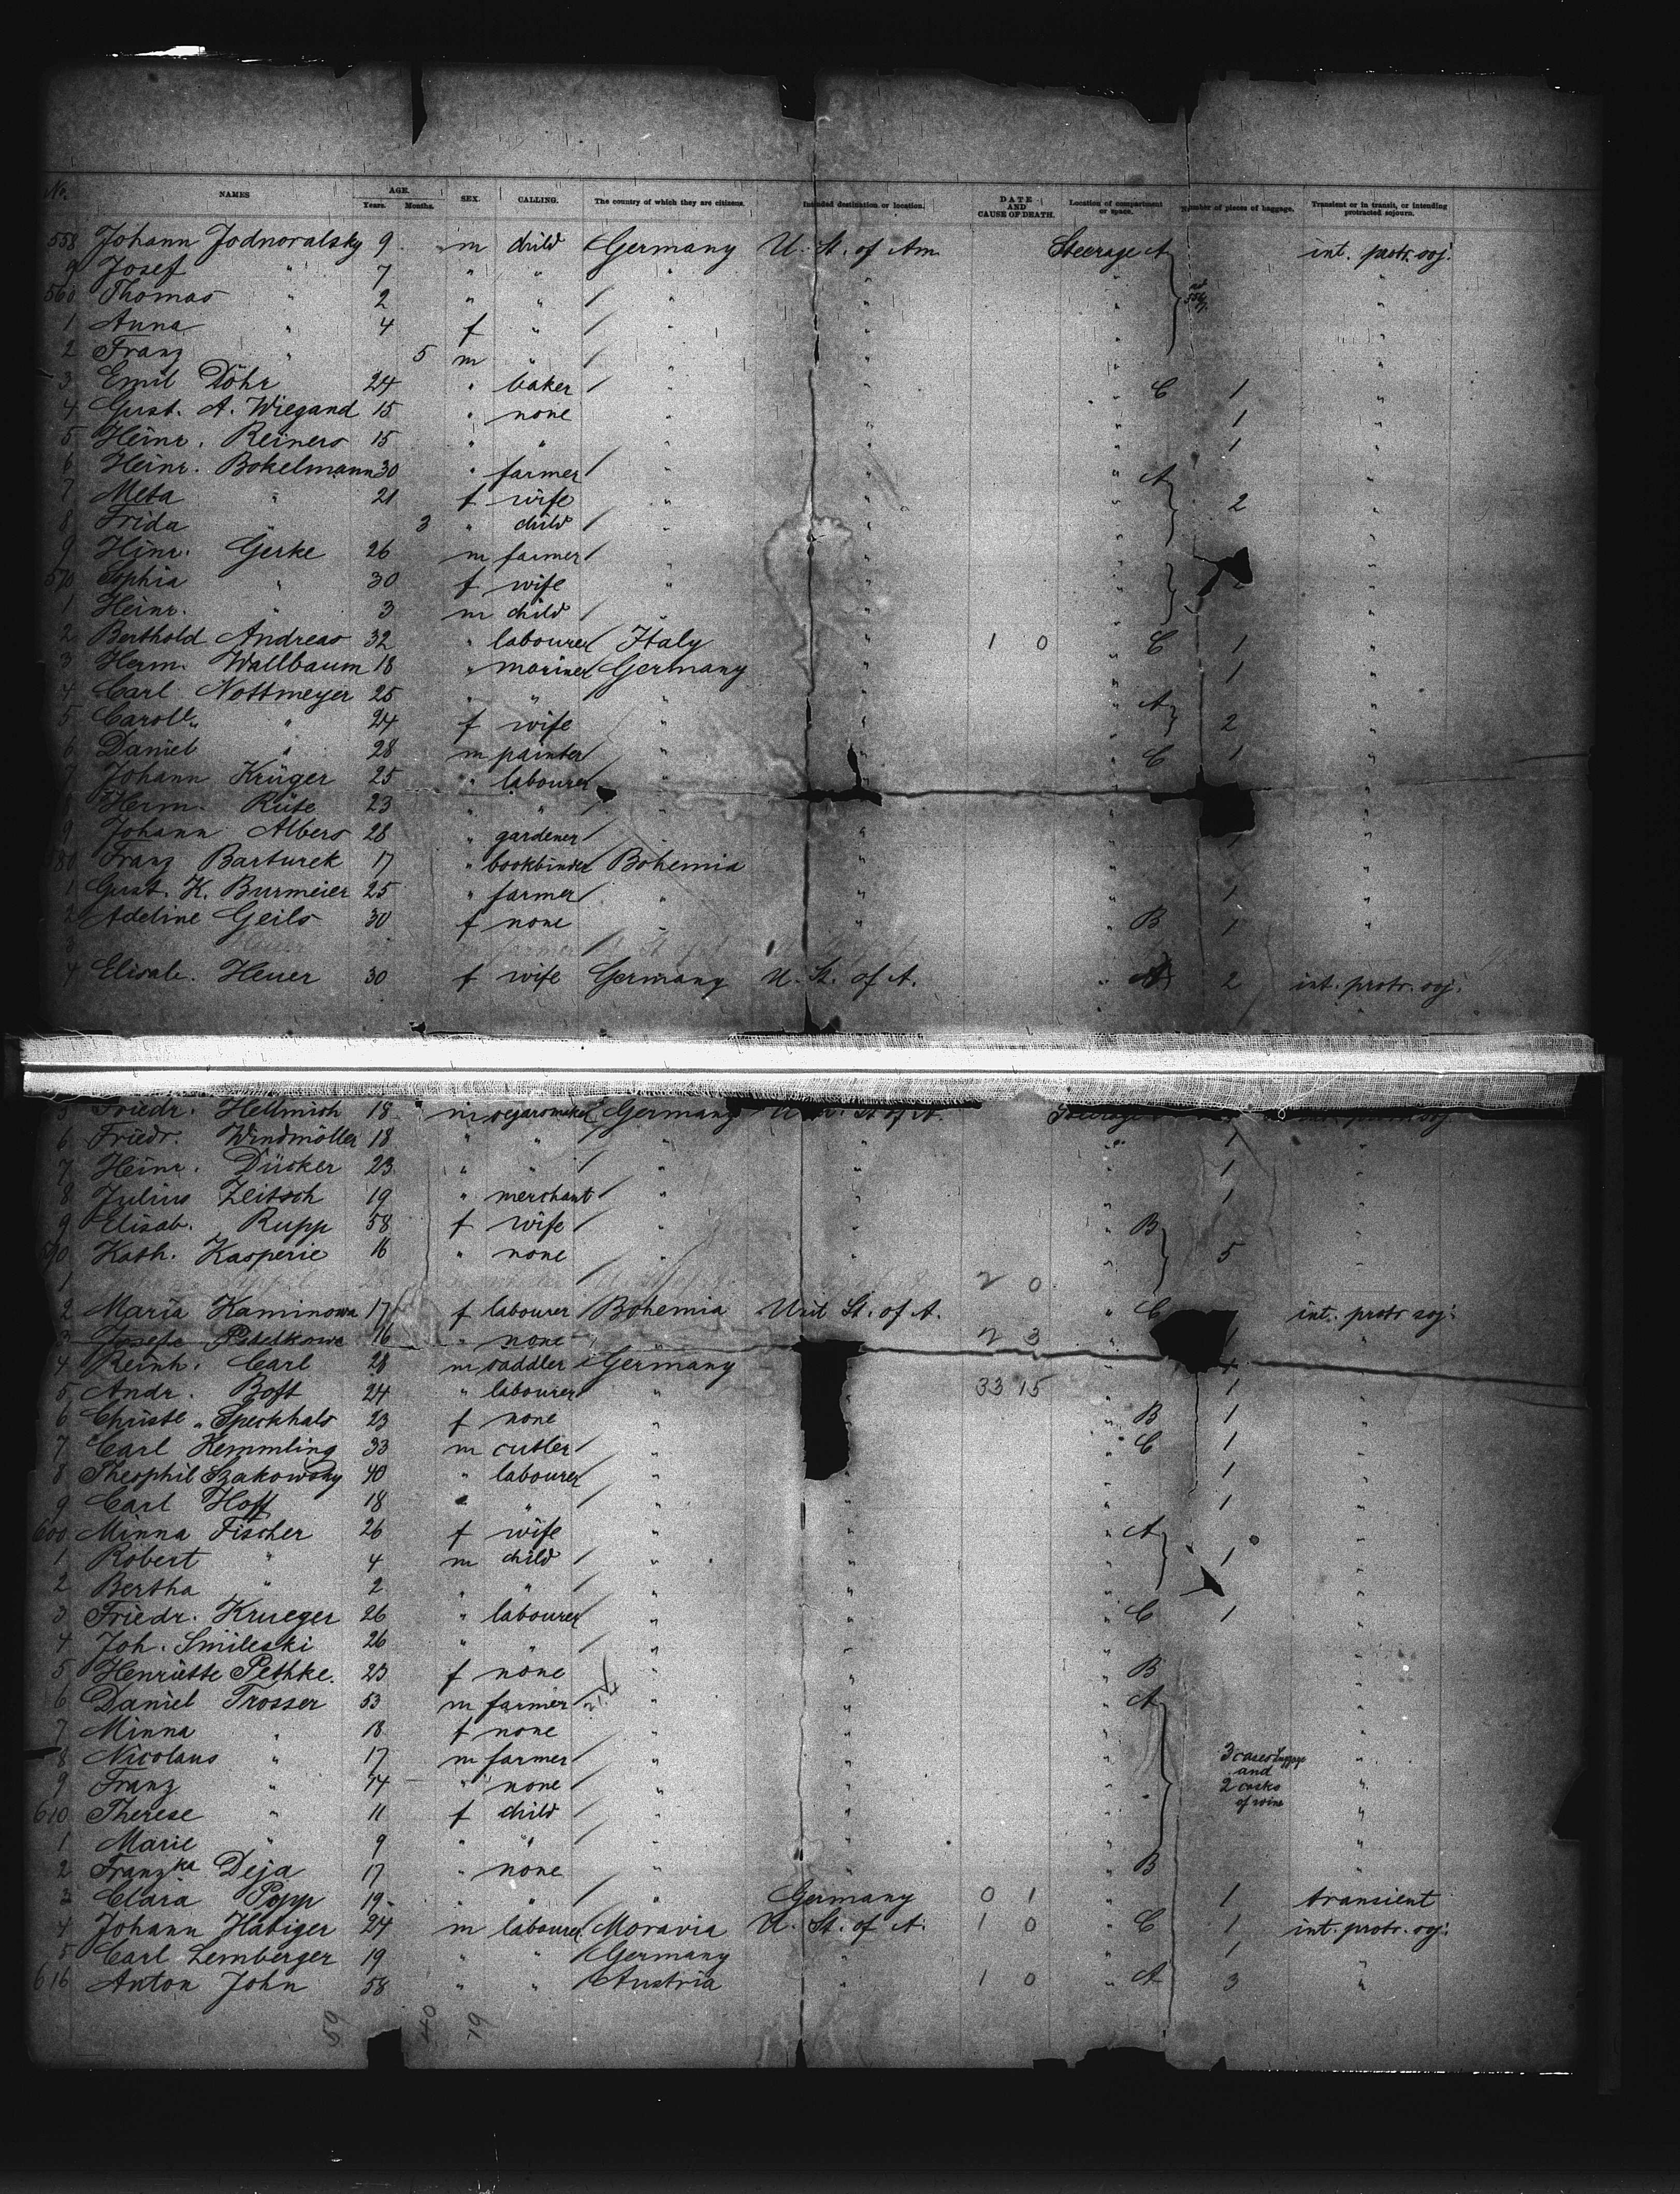 No. NAMES AGE. Years. Months. SEX. CALLING. The country of which they are citizens. Intended destination or location. DATE AND CAUSE OF DEATH. Location of compartment or space. Number of pieces of baggage. Transient or in transit, or intending protracted sojourn.
558 Johann Jodnoralsky 9 m child Germany U. St. of Am. Steerage A int. protr. soj.
9 Josef " 7 " " " " " "
560 Thomas " 2 " " " " " "
1 Anna " 4 f " " " " "
2 Franz " 5 m " " " " "
3 Emil Döhr 24 " baker " " " C 1 "
4 Gust. A. Wiegand 15 " none " " " 1 "
5 Heinr. Reiners 15 " " " " " 1 "
6 Heinr. Bokelmann 30 " farmer " " " A "
7 Meta " 21 f wife " " " 2 "
8 Frida " 3 " child " " " "
9 Hinr. Gerke 26 m farmer " " " "
570 Sophia " 30 f wife " " " "
1 Heinr. " 3 m child " " " "
2 Berthold Andreas 32 " labourer Italy " 1 0 " C 1 "
3 Herm. Wallbaum 18 " mariner Germany " " 1 "
4 Carl Nottmeyer 25 " " " " " A "
5 Caroll. " 24 f wife " " " 2 "
6 Daniel " 28 m painter " " " C 1 "
7 Johann Krüger 25 " labourer " " " "
Herm. Rüte 23 " " " " " "
9 Johann Albers 28 " gardener " " " 1 "
580 Franz Barturek 17 " bookbinder Bohemia " " "
1 Gust. K. Burmeier 25 " farmer " " " 1 "
2 Adeline Geils 30 f none " " " B 1 "
3
4 Elisab. Heuer 30 f wife Germany U. St. of A. " A 2 int. protr. soj.
5 Friedr. Hellmich 18 m Germany
6 Friedr. Windmöller 18 " " " " " 1 "
7 Heinr. Dücker 23 " " " " " 1 "
8 Julius Zeitsch 19 " merchant " " " 1 "
9 Elisab. Rupp 58 f wife " " " B "
590 Kath. Kasperie 16 " none " " " 5 "
1 2 0
2 Maria Kaminowa 17 f labourer Bohemia Unit St. of A. " C int. protr soj.
3 Josefa 16 " none 2 3 1
4 Reinh. Carl 28 m saddler Germany "
5 Andr. Boft 24 " labourer " 33 15 " 1 "
6 Christe. Speckhals 23 f none " " B 1 "
7 Carl Hemmling 33 m cutler " " C 1 "
8 Theophil Szakowsky 40 " labourer " " 1 "
9 Carl Hoff 18 " " " " " 1 "
600 Minna Fischer 26 f wife " " " A "
1 Robert " 4 m child " " " 1 "
2 Bertha " 2 " " " " " "
3 Friedr. Krueger 26 " labourer " " " C 1 "
4 Joh. Smileski 26 " " " " " "
5 Henriette Pethke. 23 f none " " " B "
6 Daniel Trosser 53 m farmer " " " A "
7 Minna " 18 f none " " " "
8 Nicolaus " 17 m farmer " " " 3 cases luggage and "
9 Franz " 14 " none " " " 2 casks of wine "
610 Therese " 11 f child " " " "
1 Marie " 9 " " " " " "
2 Franzka Deja 17 " none " " " B "
3 Clara Popp 19 " " " Germany 0 1 " 1 transient
4 Johann Habiger 24 m labourer Moravia U. St. of A. 1 0 " C 1 int. protr. soj.
5 Carl Lemberger 19 " " Germany " " 1 "
616 Anton John 58 " " Austria " 1 0 " A 3 "
59 40 19